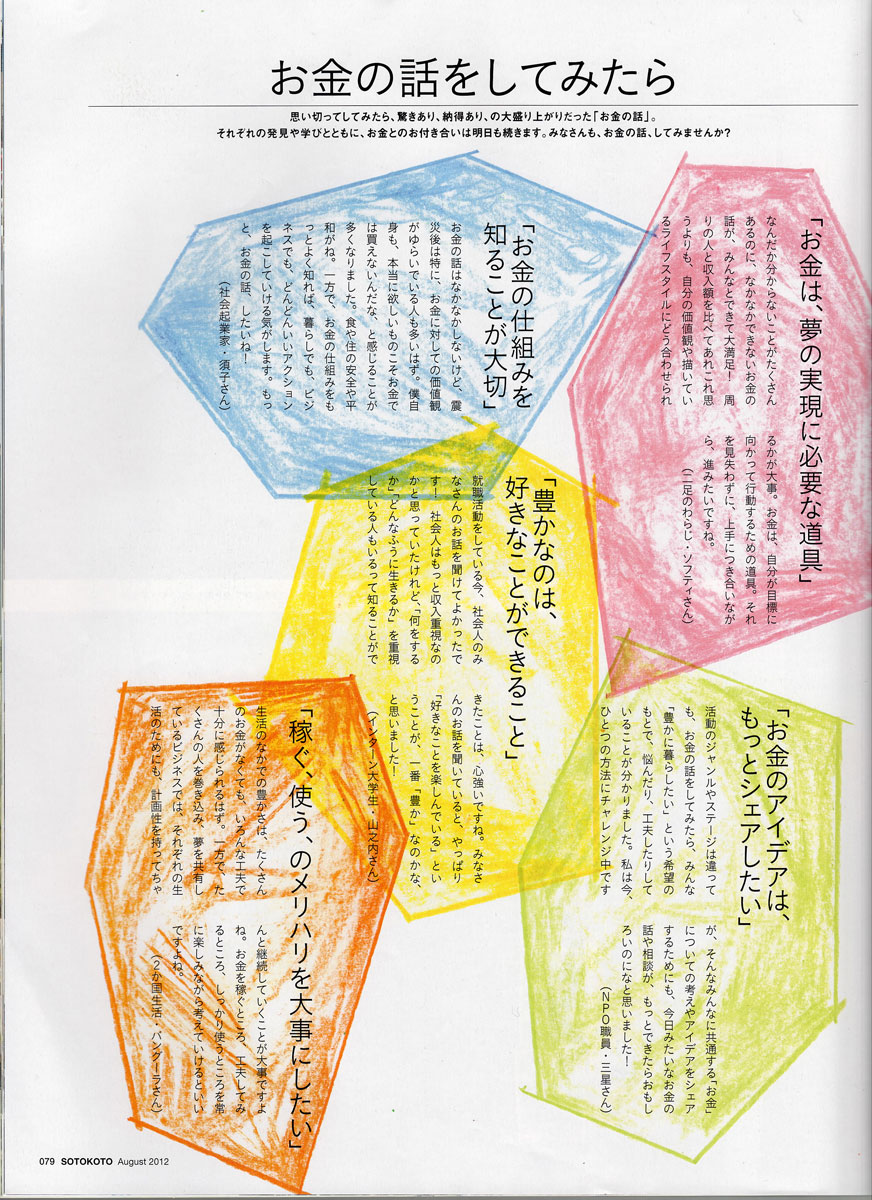 お金の話をしてみたら
思い切ってしてみたら、驚きあり、納得あり、の大盛り上がりだった「お金の話」。
それぞれの発見や学びとともに、お金とのお付き合いは明日も続きます。みなさんも、お金の話、してみませんか？
「お金は、夢の実現に必要な道具」
なんだか分からないことがたくさん
あるのに、なかなかできないお金の
話が、みんなとできて大満足！　周
りの人と収入額を比べてあれこれ思
うよりも、自分の価値観や描いてい
るライフスタイルにどう合わせられ
るかが大事。お金は、自分が目標に
向かって行動するための道具。それ
を見失わずに、上手につき合いなが
ら、進みたいですね。
（二足のわらじ・ソフティさん）
「お金の仕組みを
知ることが大切」
お金の話はなかなかしないけど、震
災後は特に、お金に対しての価値観
がゆらいでいる人も多いはず。僕自
身も、本当に欲しいものこそお金で
は買えないんだな、と感じることが
多くなりました。食や住の安全や平
和がね。一方で、お金の仕組みをも
っとよく知れば、暮らしでも、ビジ
ネスでも、どんどんいいアクション
を起こしていける気がします。もっ
と、お金の話、したいね！
（社会起業家・須子さん）
「豊かなのは、
好きなことができること」
就職活動をしている今、社会人のみ
なさんのお話を聞けてよかったで
す！　社会人はもっと収入重視なの
かと思っていたけれど、「何をする
か」「どんなふうに生きるか」を重視
している人もいるって知ることがで
きたことは、心強いですね。みなさ
んのお話を聞いていると、やっぱり
「好きなことを楽しんでいる」とい
うことが、一番「豊か」なのかな、
と思いました！
（インターン大学生・山之内さん）
「お金のアイデアは、
もっとシェアしたい」
活動のジャンルやステージは違って
も、お金の話をしてみたら、みんな
「豊かに暮らしたい」という希望の
もとで、悩んだり、工夫したりして
いることが分かりました。私は今、
ひとつの方法にチャレンジ中です
が、そんなみんなに共通する「お金」
についての考えやアイデアをシェア
するためにも、今日みたいなお金の
話や相談が、もっとできたらおもし
ろいのになと思いました！
（NPO職員・三星さん）
「稼ぐ、使う、のメリハリを大事にしたい」
生活のなかでの豊かさは、たくさん
のお金がなくても、いろんな工夫で
十分に感じられるはず。一方で、た
くさんの人を巻き込み、夢を共有し
ているビジネスでは、それぞれの生
活のためにも、計画性を持ってちゃ
んと継続していくことが大事ですよ
ね。お金を稼ぐところ、工夫してみ
るところ、しっかり使うところを常
に楽しみながら考えていけるといい
ですよね。
（２か国生活・バングーラさん）
079 SOTOKOTO August 2012